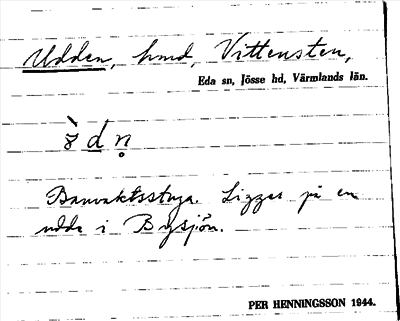 Udden, hmd, Vittensten,
Eda sn, Jösse hd, Värmlands län.
Banvaktsstuga. Ligger på en
udde i Bysjön.
PER HENNINGSSON 1944.